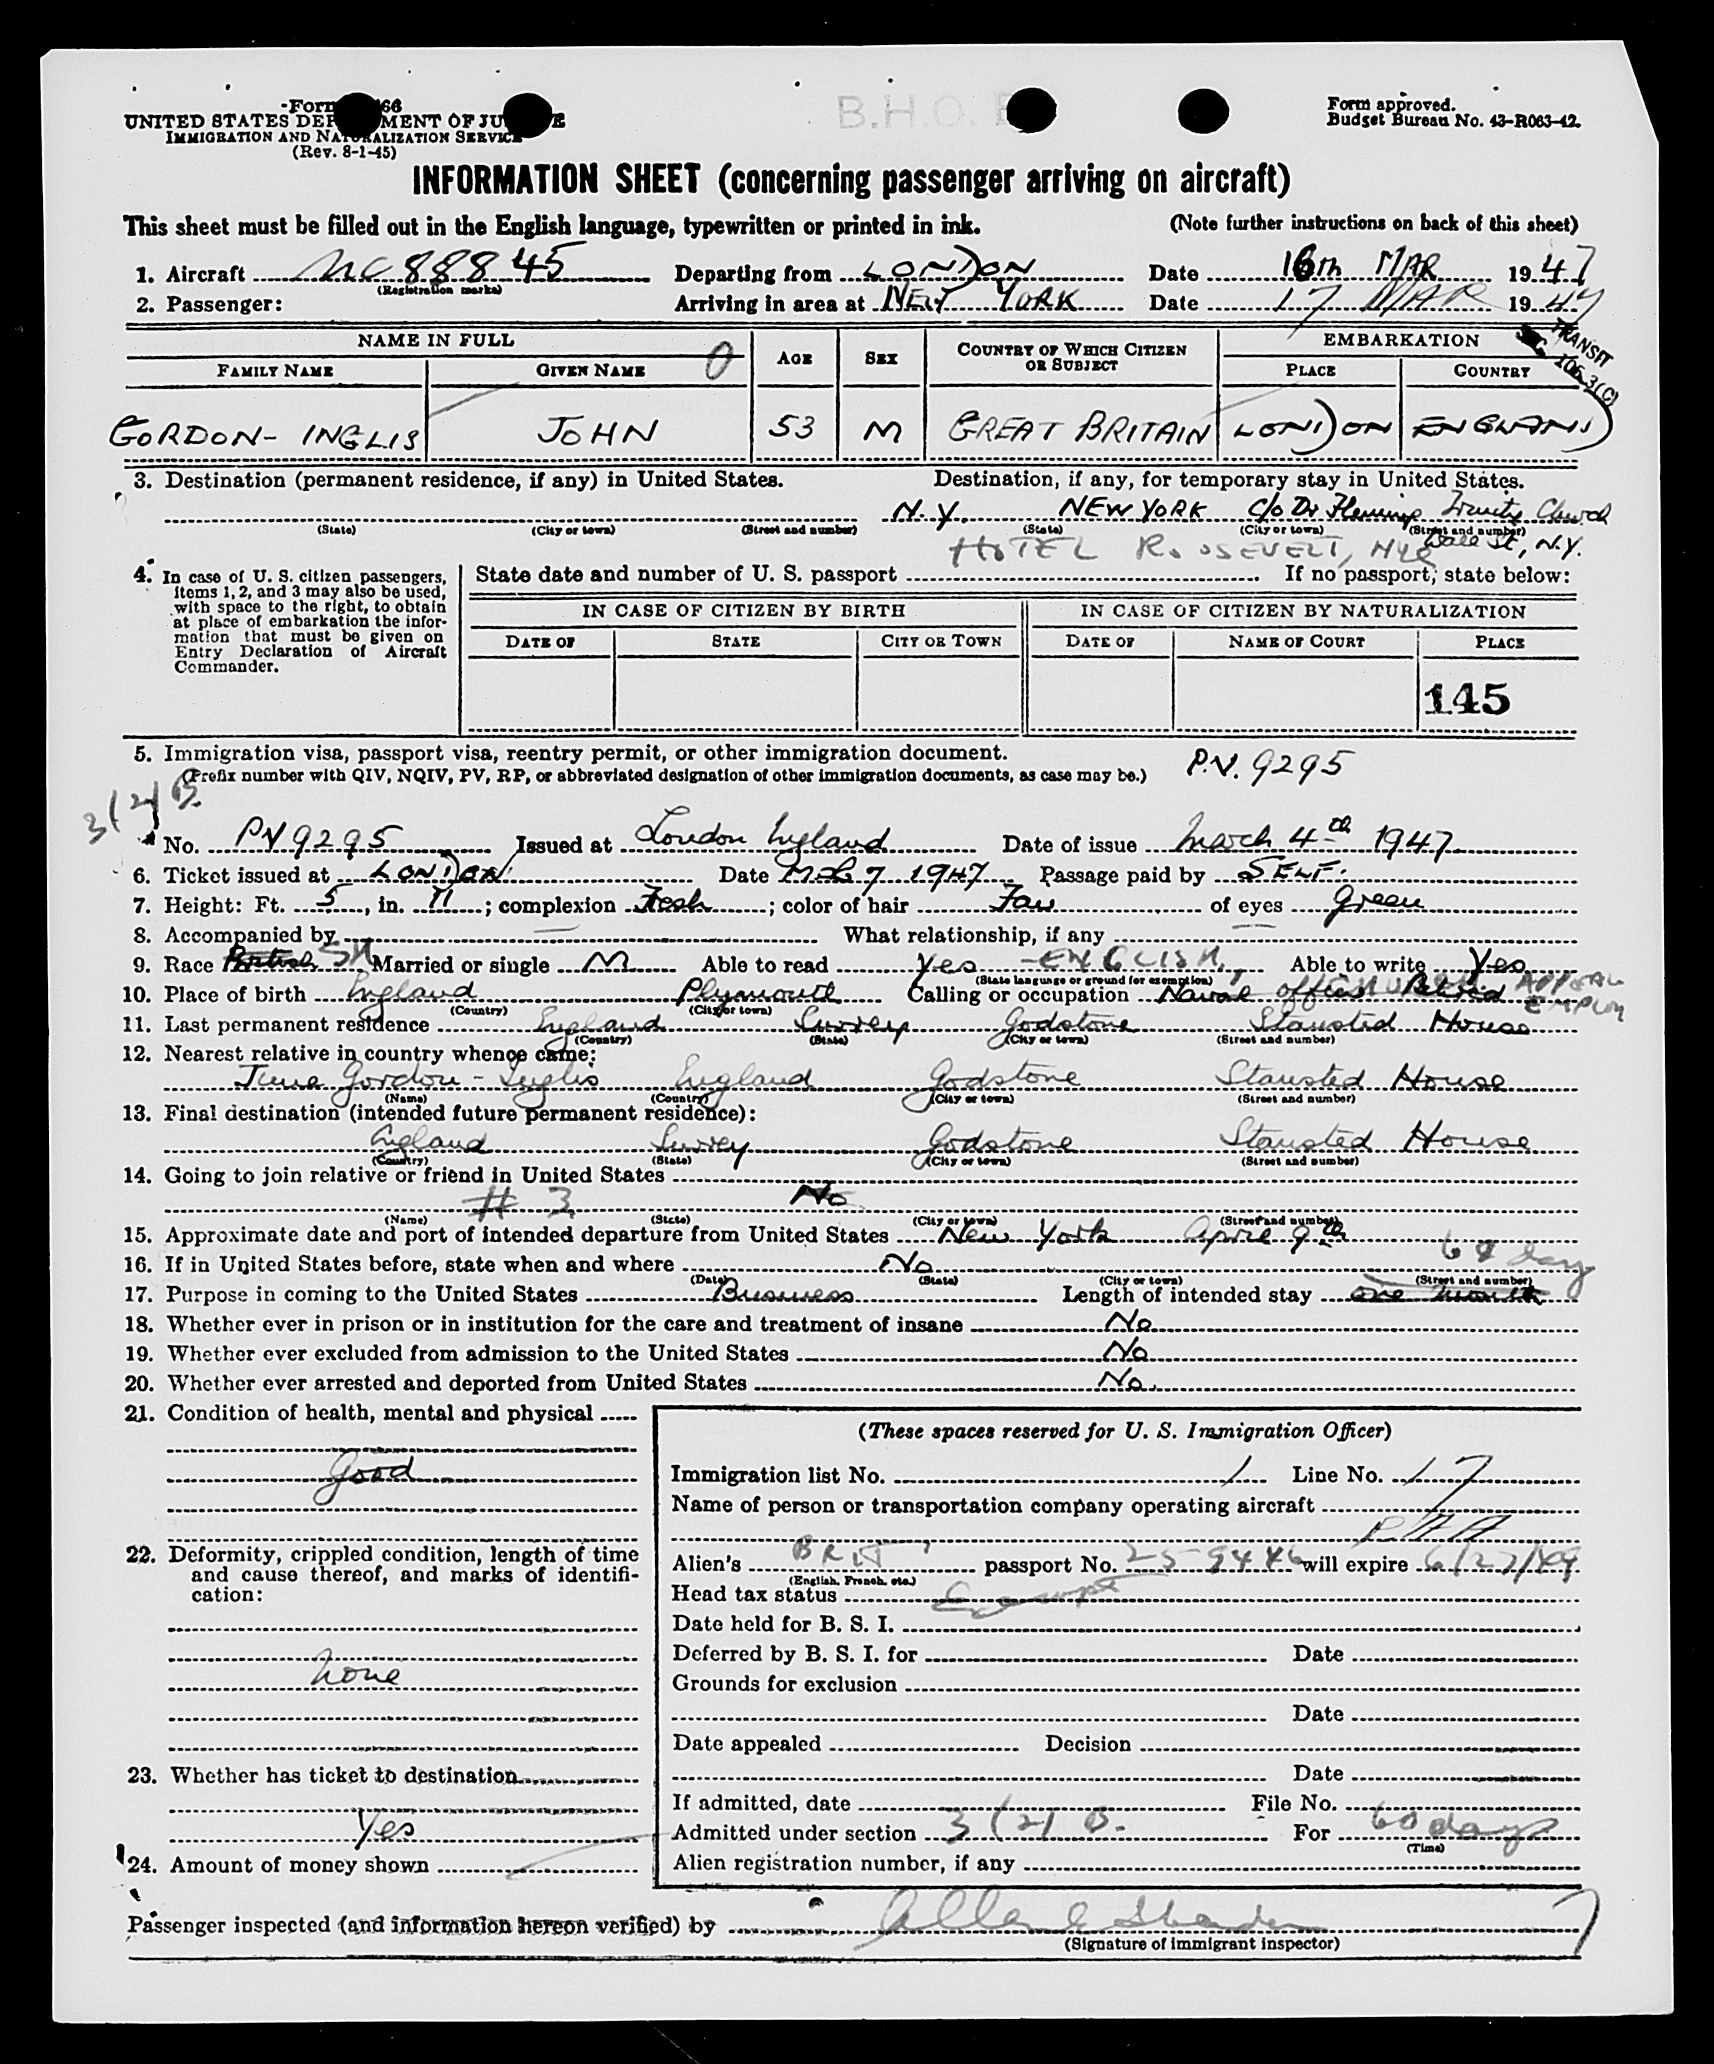 Form 66
UNITED STATES DEPARTMENT OF JUSTICE
IMMIGRATION AND NATURALIZATION SERVICE
(Rev. 8-1-45)
B.H.O.
Form approved.
Budget Bureau No. 43-R063-42.
INFORMATION SHEET (concerning passenger arriving on aircraft)
This sheet must be filled out in the English language, typewritten or printed in ink. (Note further instructions on back of this sheet)
1. Aircraft NC 88845 Departing from LONDON Date 16th MAR 1947
(Registration marks)
2. Passenger: Arriving in area at NEW YORK Date 17 MAR 1947
TRANSIT
SEC 106.3(C)
NAME IN FULL AGE SEX COUNTRY OF WHICH CITIZEN OR SUBJECT EMBARKATION
FAMILY NAME GIVEN NAME PLACE COUNTRY
GORDON-INGLIS JOHN 53 M GREAT BRITAIN LONDON ENGLAND
3. Destination (permanent residence, if any) in United States. Destination, if any, for temporary stay in United States.
N.Y. NEW YORK C/o Dr Fleming Trinity Church
(State) (City or town) (Street and number) (State) (City or town) (Street and number)
Wall St, N.Y.
HOTEL ROOSEVELT, NYC
4. In case of U. S. citizen passengers, items 1, 2, and 3 may also be used, with space to the right, to obtain at place of embarkation the information that must be given on Entry Declaration of Aircraft Commander.
State date and number of U. S. passport If no passport, state below:
IN CASE OF CITIZEN BY BIRTH IN CASE OF CITIZEN BY NATURALIZATION
DATE OF STATE CITY OR TOWN DATE OF NAME OF COURT PLACE
145
5. Immigration visa, passport visa, reentry permit, or other immigration document.
(Prefix number with QIV, NQIV, PV, RP, or abbreviated designation of other immigration documents, as case may be.) P.V. 9295
3(2)B.
No. PV 9295 Issued at London England Date of issue March 4th 1947
6. Ticket issued at LONDON Date 7 1947 Passage paid by SELF.
7. Height: Ft. 5, in. 11; complexion Fresh; color of hair Fair of eyes Green
8. Accompanied by — What relationship, if any —
9. Race British Married or single M Able to read Yes - ENGLISH Able to write Yes
(State language or ground for exemption)
10. Place of birth England Plymouth Calling or occupation Naval officer Retired APPEAL EMPLOY
(Country) (City or town)
11. Last permanent residence England Surrey Godstone Stansted House
(Country) (State) (City or town) (Street and number)
12. Nearest relative in country whence came:
June Gordon-Inglis England Godstone Stansted House
(Name) (Country) (City or town) (Street and number)
13. Final destination (intended future permanent residence):
England Surrey Godstone Stansted House
(Country) (State) (City or town) (Street and number)
14. Going to join relative or friend in United States
# 3 No
(Name) (State) (City or town) (Street and number)
15. Approximate date and port of intended departure from United States New York April 9th
16. If in United States before, state when and where No
(Date) (State) (City or town) (Street and number)
60 day
17. Purpose in coming to the United States Business Length of intended stay one month
18. Whether ever in prison or in institution for the care and treatment of insane No
19. Whether ever excluded from admission to the United States No
20. Whether ever arrested and deported from United States No.
21. Condition of health, mental and physical
Good
22. Deformity, crippled condition, length of time and cause thereof, and marks of identification:
None
23. Whether has ticket to destination
Yes
24. Amount of money shown
(These spaces reserved for U. S. Immigration Officer)
Immigration list No. 1 Line No. 17
Name of person or transportation company operating aircraft
PAA
Alien's BRIT passport No. will expire 6/27/49
(English, French, etc.)
Head tax status Exempt
Date held for B. S. I.
Deferred by B. S. I. for Date
Grounds for exclusion
Date
Date appealed Decision
Date
If admitted, date File No.
Admitted under section 3(2) B. For 60 days
(Time)
Alien registration number, if any
Passenger inspected (and information hereon verified) by
(Signature of immigrant inspector)